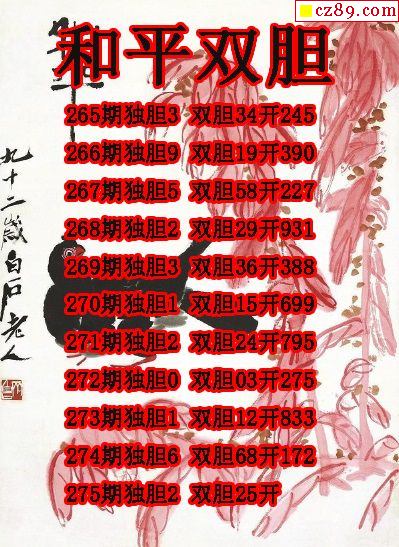 cz89.com
和平双胆
265期独胆3 双胆34开245
266期独胆9 双胆19开390
267期独胆5 双胆58开227
268期独胆2 双胆29开931
269期独胆3 双胆36开388
270期独胆1 双胆15开699
271期独胆2 双胆24开795
272期独胆0 双胆03开275
273期独胆1 双胆12开833
274期独胆6 双胆68开172
275期独胆2 双胆25开
九十二岁白石老人